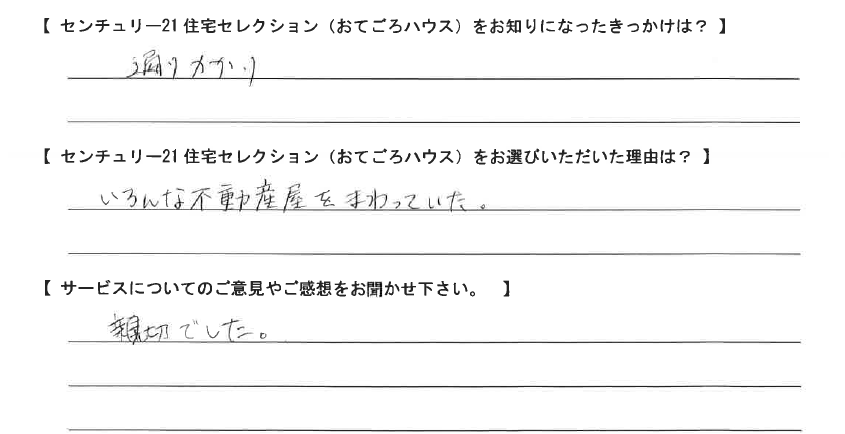 【 センチュリー21 住宅セレクション（おてごろハウス）をお知りになったきっかけは？ 】
通りかかり
【 センチュリー21 住宅セレクション（おてごろハウス）をお選びいただいた理由は？ 】
いろんな不動産屋をまわっていた。
【 サービスについてのご意見やご感想をお聞かせ下さい。 】
親切でした。